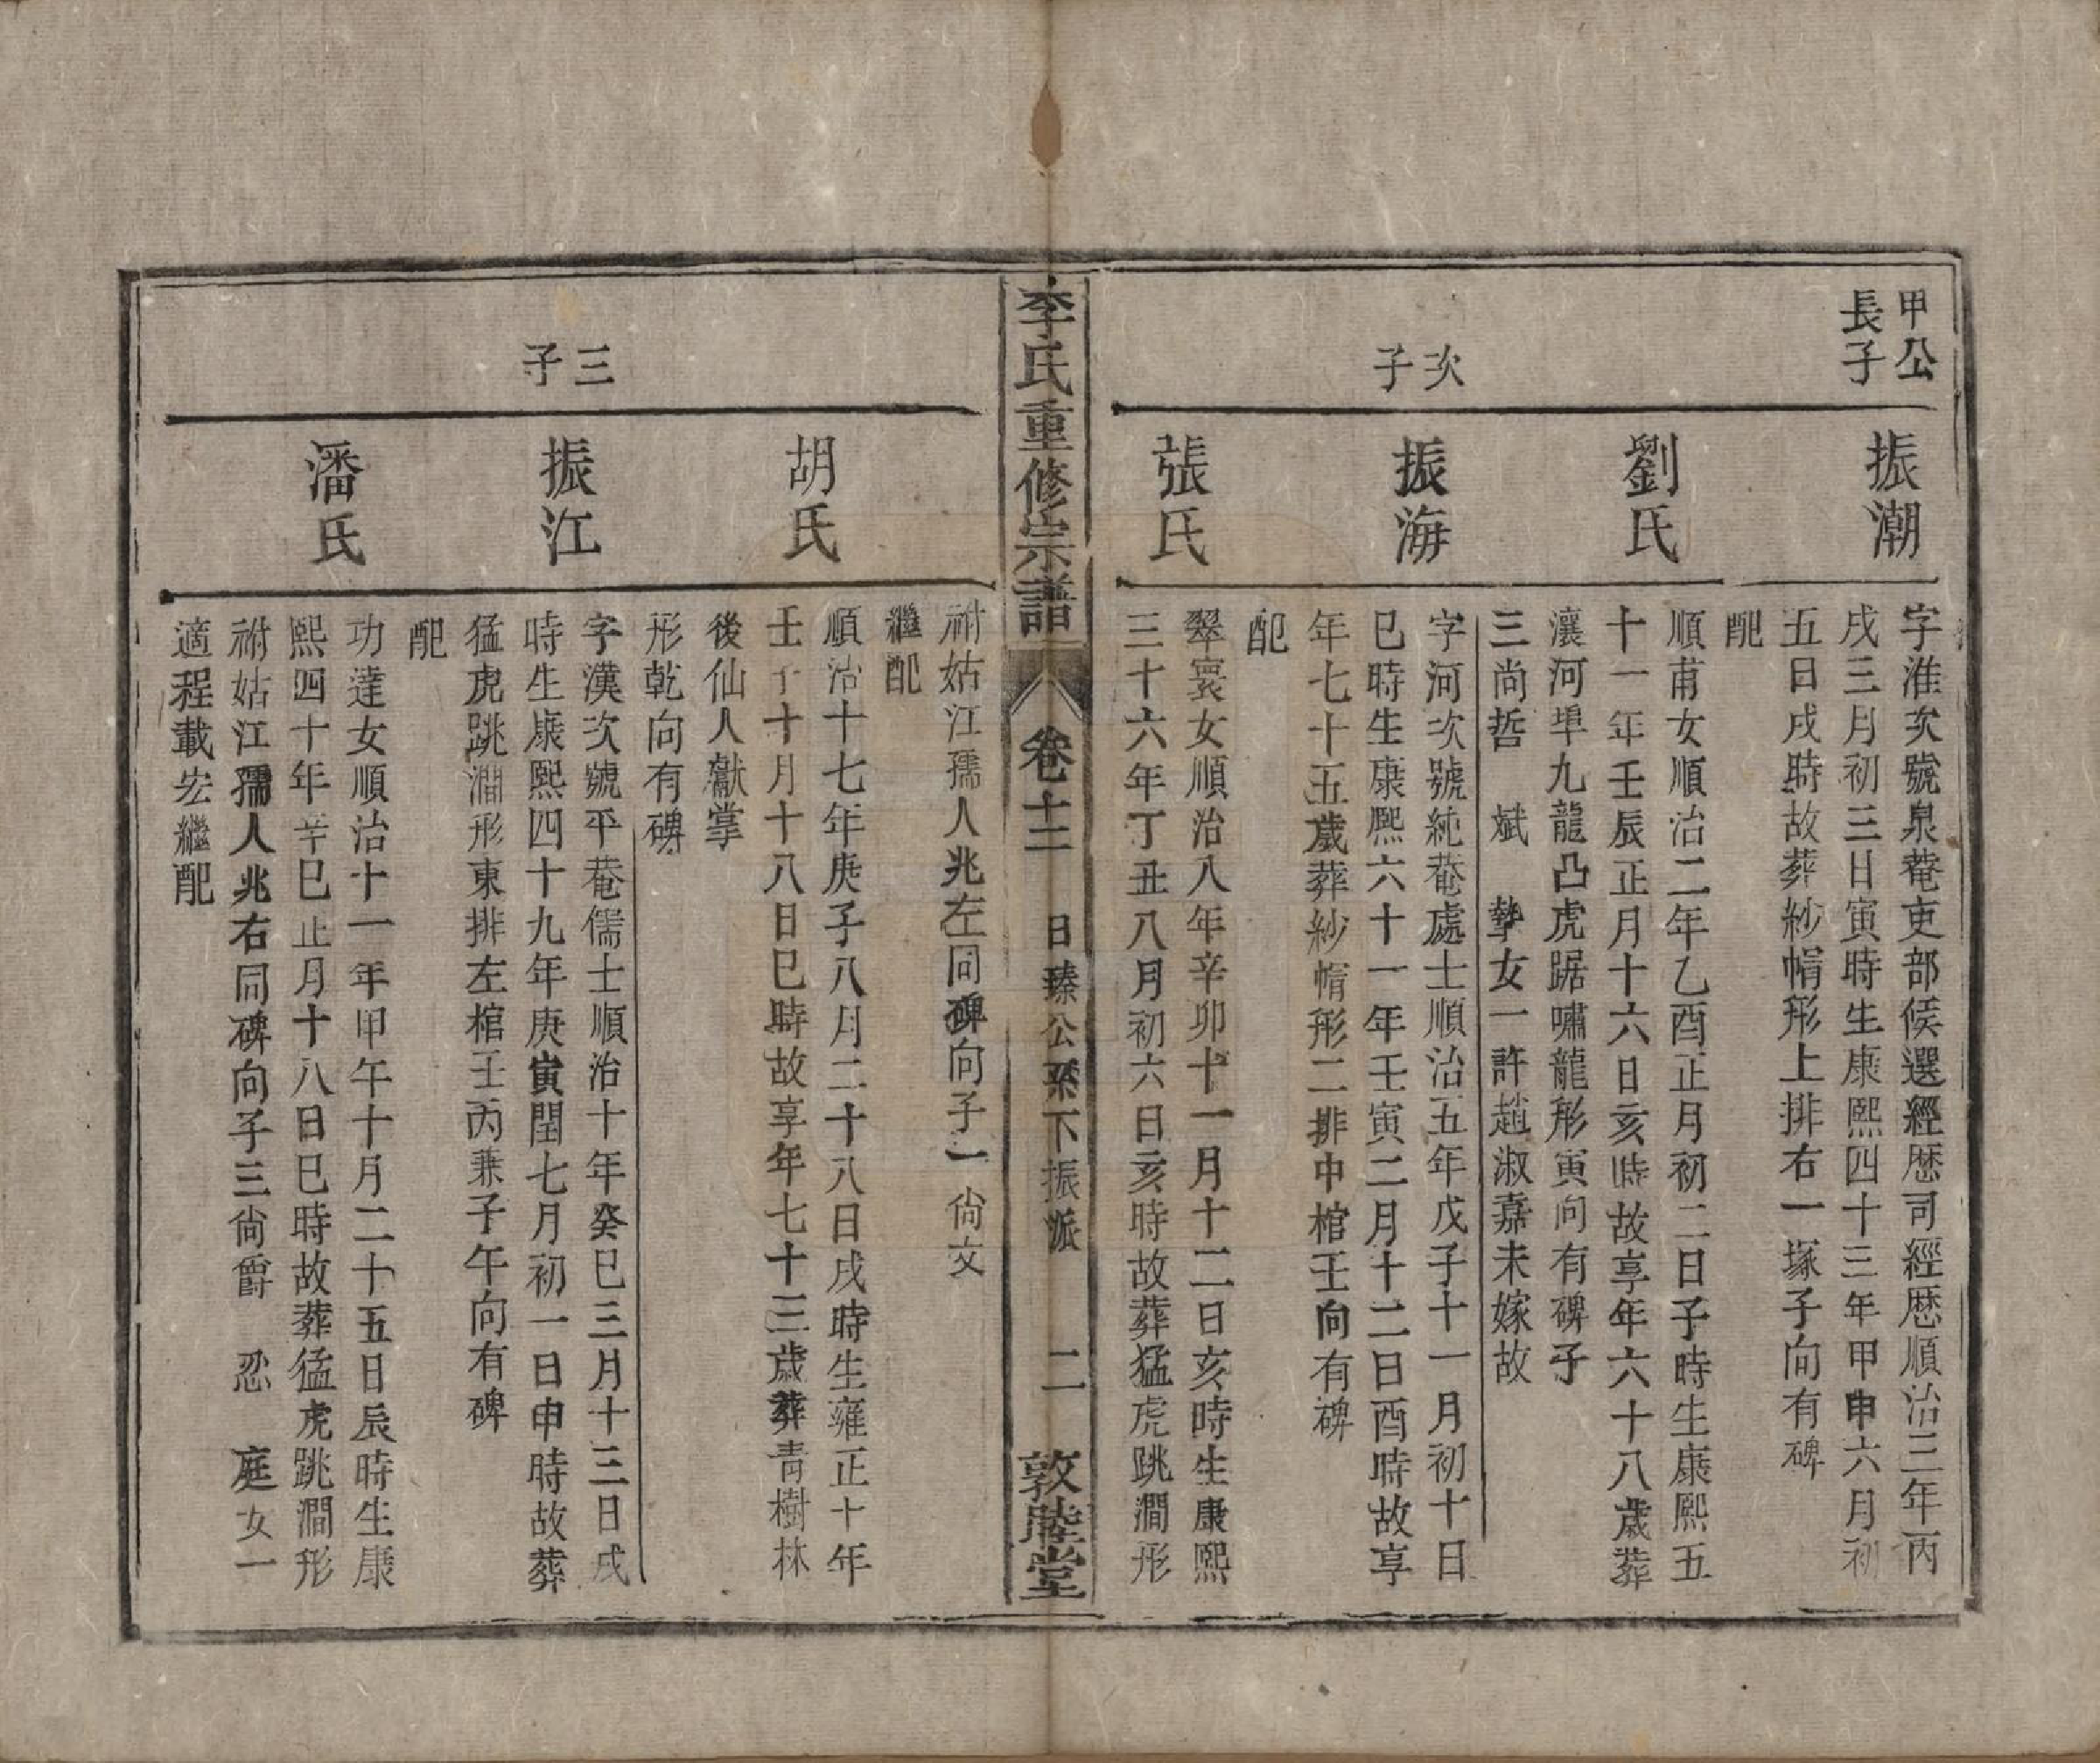 甲公
長子
振潮
字淮次號泉菴吏部候選經歷司經歷順治三年丙
戌三月初三日寅時生康熙四十三年甲申六月初
五日戌時故葬紗帽形上排右一塚子向有碑
配
劉氏
順甫女順治二年乙酉正月初二日子時生康熙五
十一年壬辰正月十六日亥時故享年六十八歲葬
瀼河埠九龍凸虎踞嘯龍形寅向有碑子
三尚哲　斌　摯女一許趙淑嘉未嫁故
次子
振海
字河次號純菴處士順治五年戊子十一月初十日
巳時生康熙六十一年壬寅二月十二日酉時故享
年七十五歲葬紗帽形二排中棺壬向有碑
配
張氏
翠寰女順治八年辛卯十一月十二日亥時生康熙
三十六年丁丑八月初六日亥時故葬猛虎跳澗形
李氏重修宗譜　卷十二　日臻公系下振派　二　敦睦堂
祔姑江孺人兆左同碑向子一尙文
繼配
胡氏
順治十七年庚子八月二十八日戌時生雍正十年
壬子十月十八日巳時故享年七十三歲葬青樹林
後仙人獻掌
形乾向有碑
三子
振江
字漢次號平菴儒士順治十年癸巳三月十三日戌
時生康熙四十九年庚寅閏七月初一日申時故葬
猛虎跳澗形東排左棺壬丙兼子午向有碑
配
潘氏
功達女順治十一年甲午十月二十五日辰時生康
熙四十年辛巳正月十八日巳時故葬猛虎跳澗形
祔姑江孺人兆右同碑向子三尙爵　忍　庭女一
適程載宏繼配